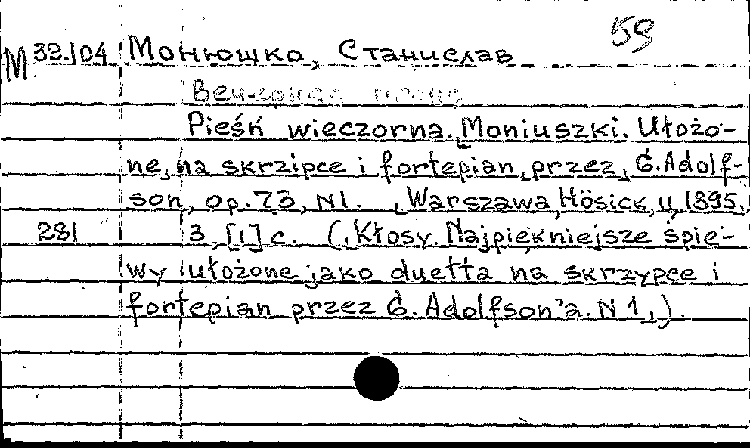 59
М 32.104 Монюшко, Станислав
Вечерняя песня
Pieśń wieczorna. Moniuszki. Ułożo-
ne, na skrzipce i fortepian, przez, G. Adolf-
son, op. 73, N1. Warszawa, Hösick, 1895.
281 3, [1] c. (Kłosy. Najpiękniejsze śpie-
wy ułożone jako duetta na skrzypce i
fortepian przez G. Adolfson'a. N 1,).